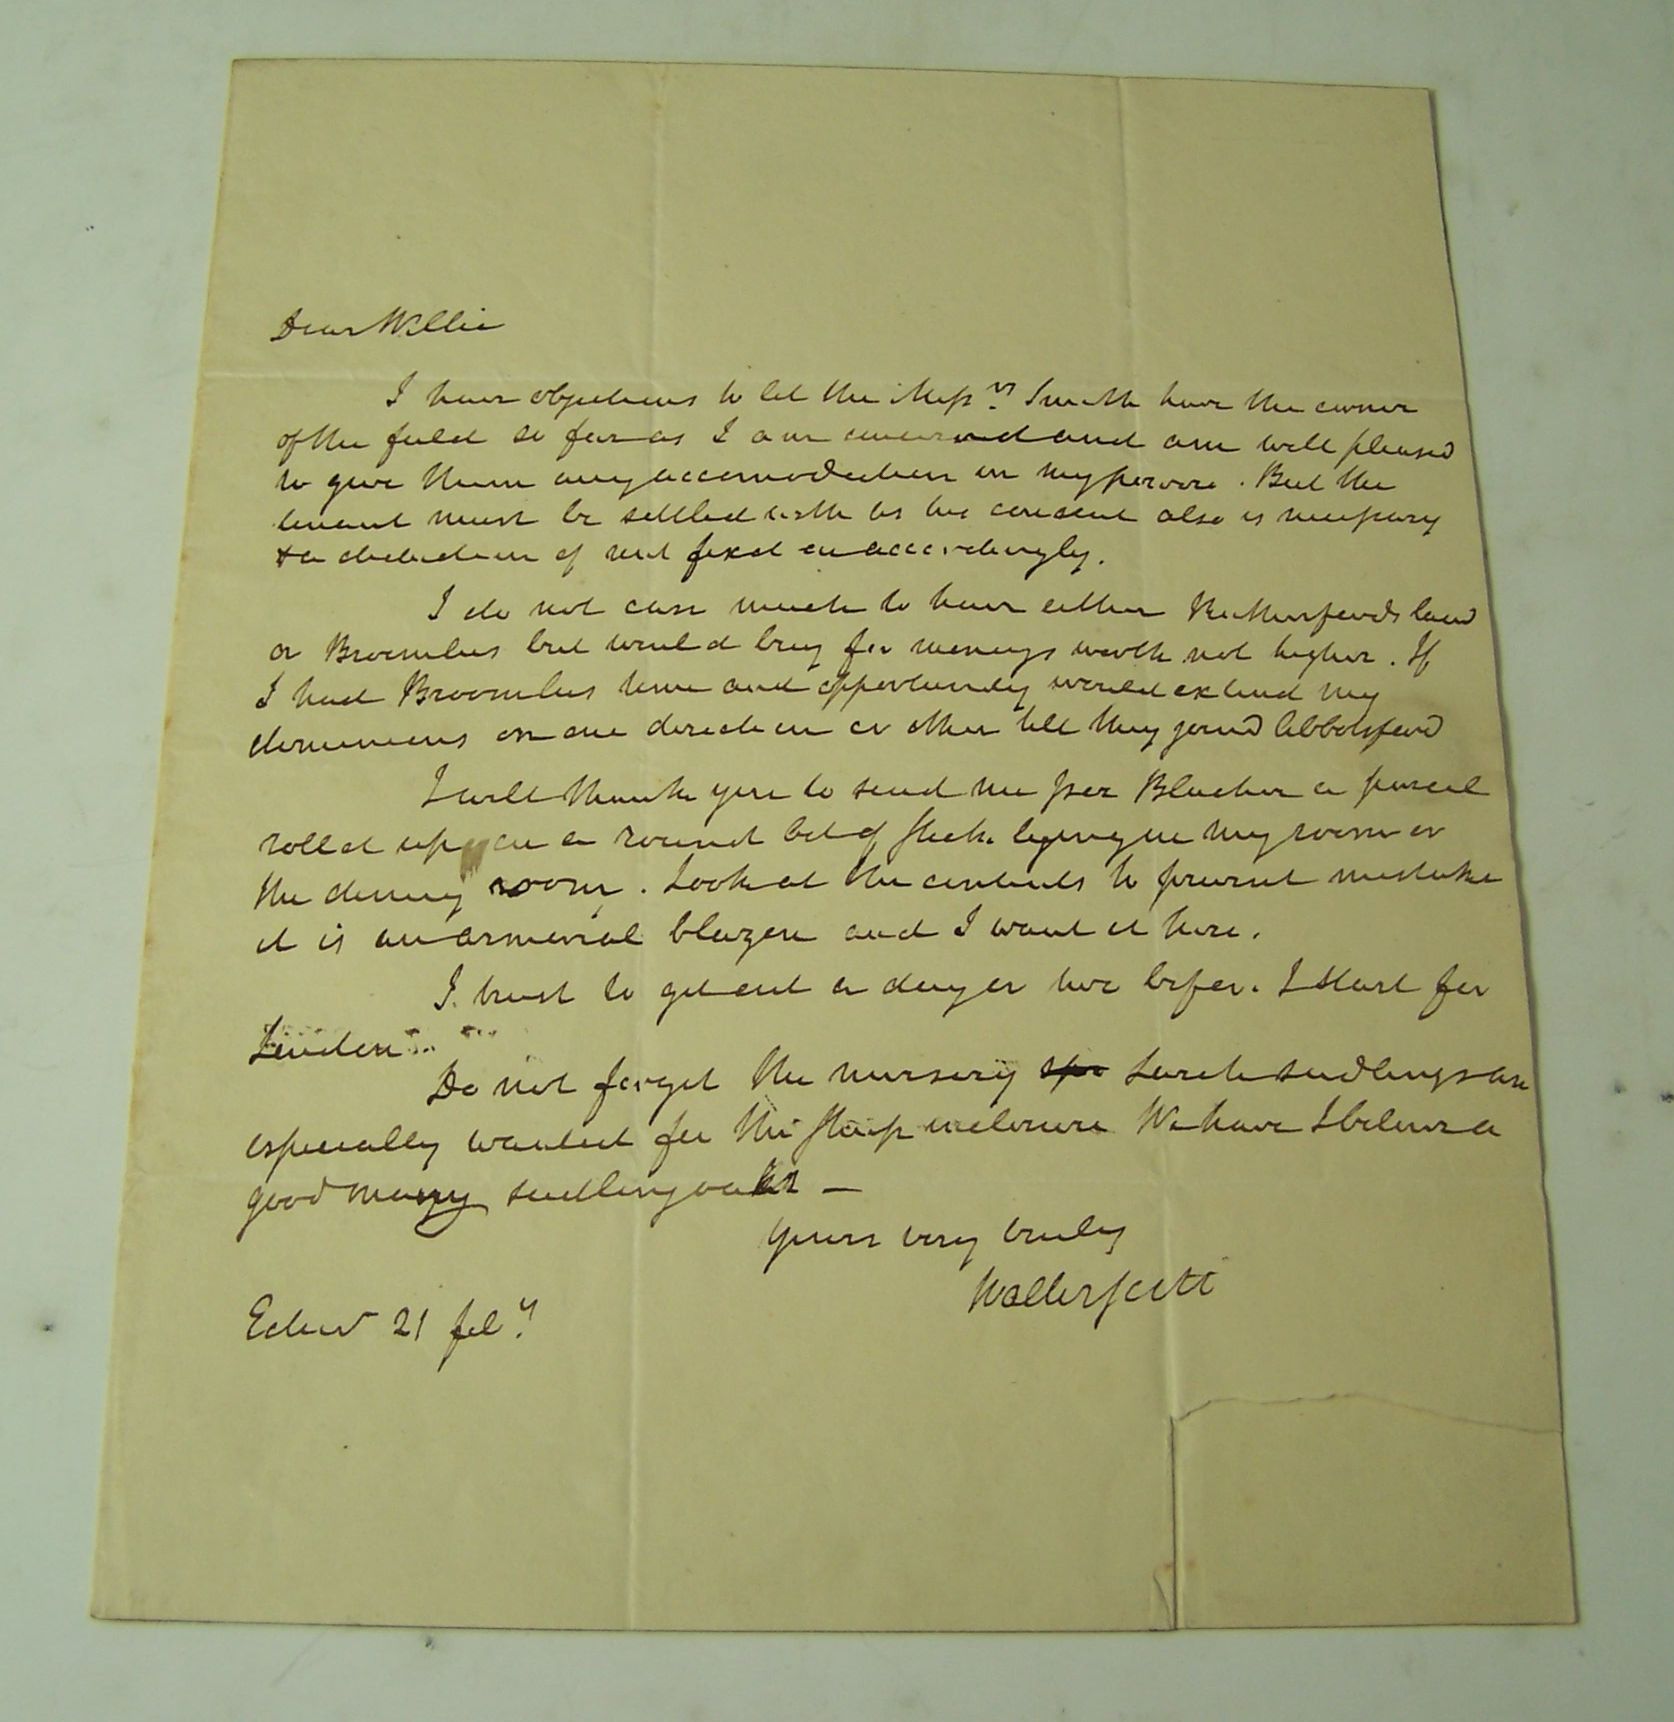 Dear Willie
I have objections to let the Messrs Smith have the corner
of the field so far as I am concerned and am well pleased
to give them any accomodation in my power. But the
tenant must be settled with as his consent also is necessary
& a deduction of rent fixd on accordingly.
I do not care much to have either Rutherfords land
or Broomlees but would buy for moneys worth not higher. If
I had Broomlees time and opportunity would extend my
dominions on one direction or other till they joind Abbotsford
I will thank you to send me per Blucher a parcel
rolled up on a round bit of stick lying in my room or
the dining room. Look at the contents to prevent mistake
it is an armorial blazon and I want it here.
I trust to get out a day or two before I start for
London
Do not forget the nursery Larch seedlings are
especially wanted for the Sheep inclosure We have I believe a
good many seedling oaks —
Yours very truly
Walter Scott
Edinr 21 feby